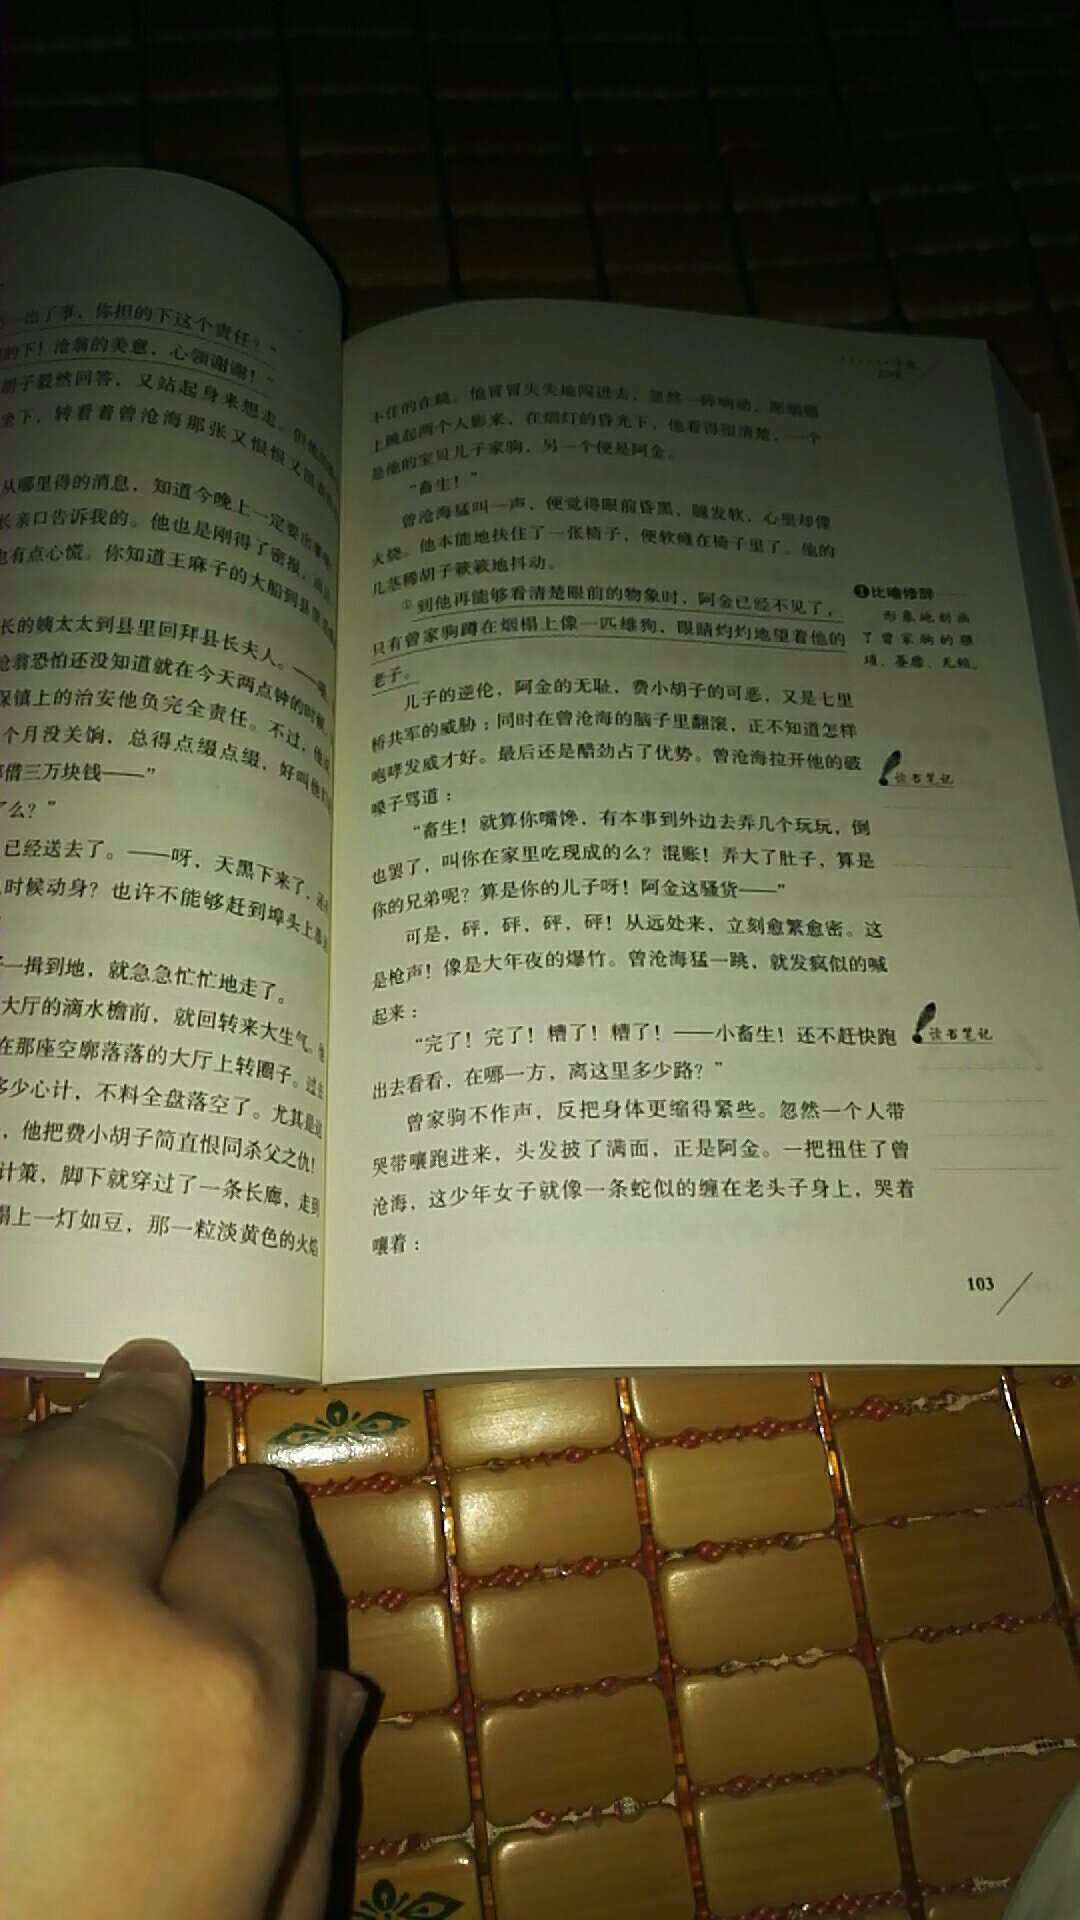 一出了事，你担的下这个责任？”
的下！沧翁的美意，心领谢谢！”
胡子毅然回答，又站起身来想走。
坐下，转看着曾沧海那张又恨恨又
从哪里得的消息，知道今晚上一定要出事
长亲口告诉我的。他也是刚得了密报，
也有点心慌。你知道王麻子的大船到县里
长的姨太太到县里回拜县长夫人。——
沧翁恐怕还没知道就在今天两点钟的时候，
保镇上的治安他负完全责任。不过，他
个月没关饷，总得点缀点缀，好叫他们
借三万块钱——”
了么？”
已经送去了。——呀，天黑下来了，
时候动身？也许不能够赶到埠头上
一揖到地，就急急忙忙地走了。
大厅的滴水檐前，就回转来大生气。他
在那座空廓落落的大厅上转圈子。过去
多少心计，不料全盘落空了。尤其是
，他把费小胡子简直恨同杀父之仇！
计策，脚下就穿过了一条长廊，走到
榻上一灯如豆，那一粒淡黄色的火焰
不住的在跳。他冒冒失失地闯进去，忽然一阵响动，那烟榻
上跳起两个人影来，在烟灯的昏光下，他看得很清楚，一个
是他的宝贝儿子家驹，另一个便是阿金。
“畜生！”
曾沧海猛叫一声，便觉得眼前昏黑，腿发软，心里却像
火烧。他本能地扶住了一张椅子，便软瘫在椅子里了。他的
几茎稀胡子簌簌地抖动。
①到他再能够看清楚眼前的物象时，阿金已经不见了，
只有曾家驹蹲在烟榻上像一匹雄狗，眼睛灼灼地望着他的
老子。
儿子的逆伦，阿金的无耻，费小胡子的可恶，又是七里
桥共军的威胁；同时在曾沧海的脑子里翻滚，正不知道怎样
咆哮发威才好。最后还是醋劲占了优势。曾沧海拉开他的破
嗓子骂道：
“畜生！就算你嘴馋，有本事到外边去弄几个玩玩，倒
也罢了，叫你在家里吃现成的么？混账！弄大了肚子，算是
你的兄弟呢？算是你的儿子呀！阿金这骚货——”
可是，砰，砰，砰，砰！从远处来，立刻愈繁愈密。这
是枪声！像是大年夜的爆竹。曾沧海猛一跳，就发疯似的喊
起来：
“完了！完了！糟了！糟了！——小畜生！还不赶快跑
出去看看，在哪一方，离这里多少路？”
曾家驹不作声，反把身体更缩得紧些。忽然一个人带
哭带嚷跑进来，头发披了满面，正是阿金。一把扭住了曾
沧海，这少年女子就像一条蛇似的缠在老头子身上，哭着
嚷着：
❶比喻修辞
形象地刻画
了曾家驹的猥
琐、萎靡、无赖。
读书笔记
读书笔记
103